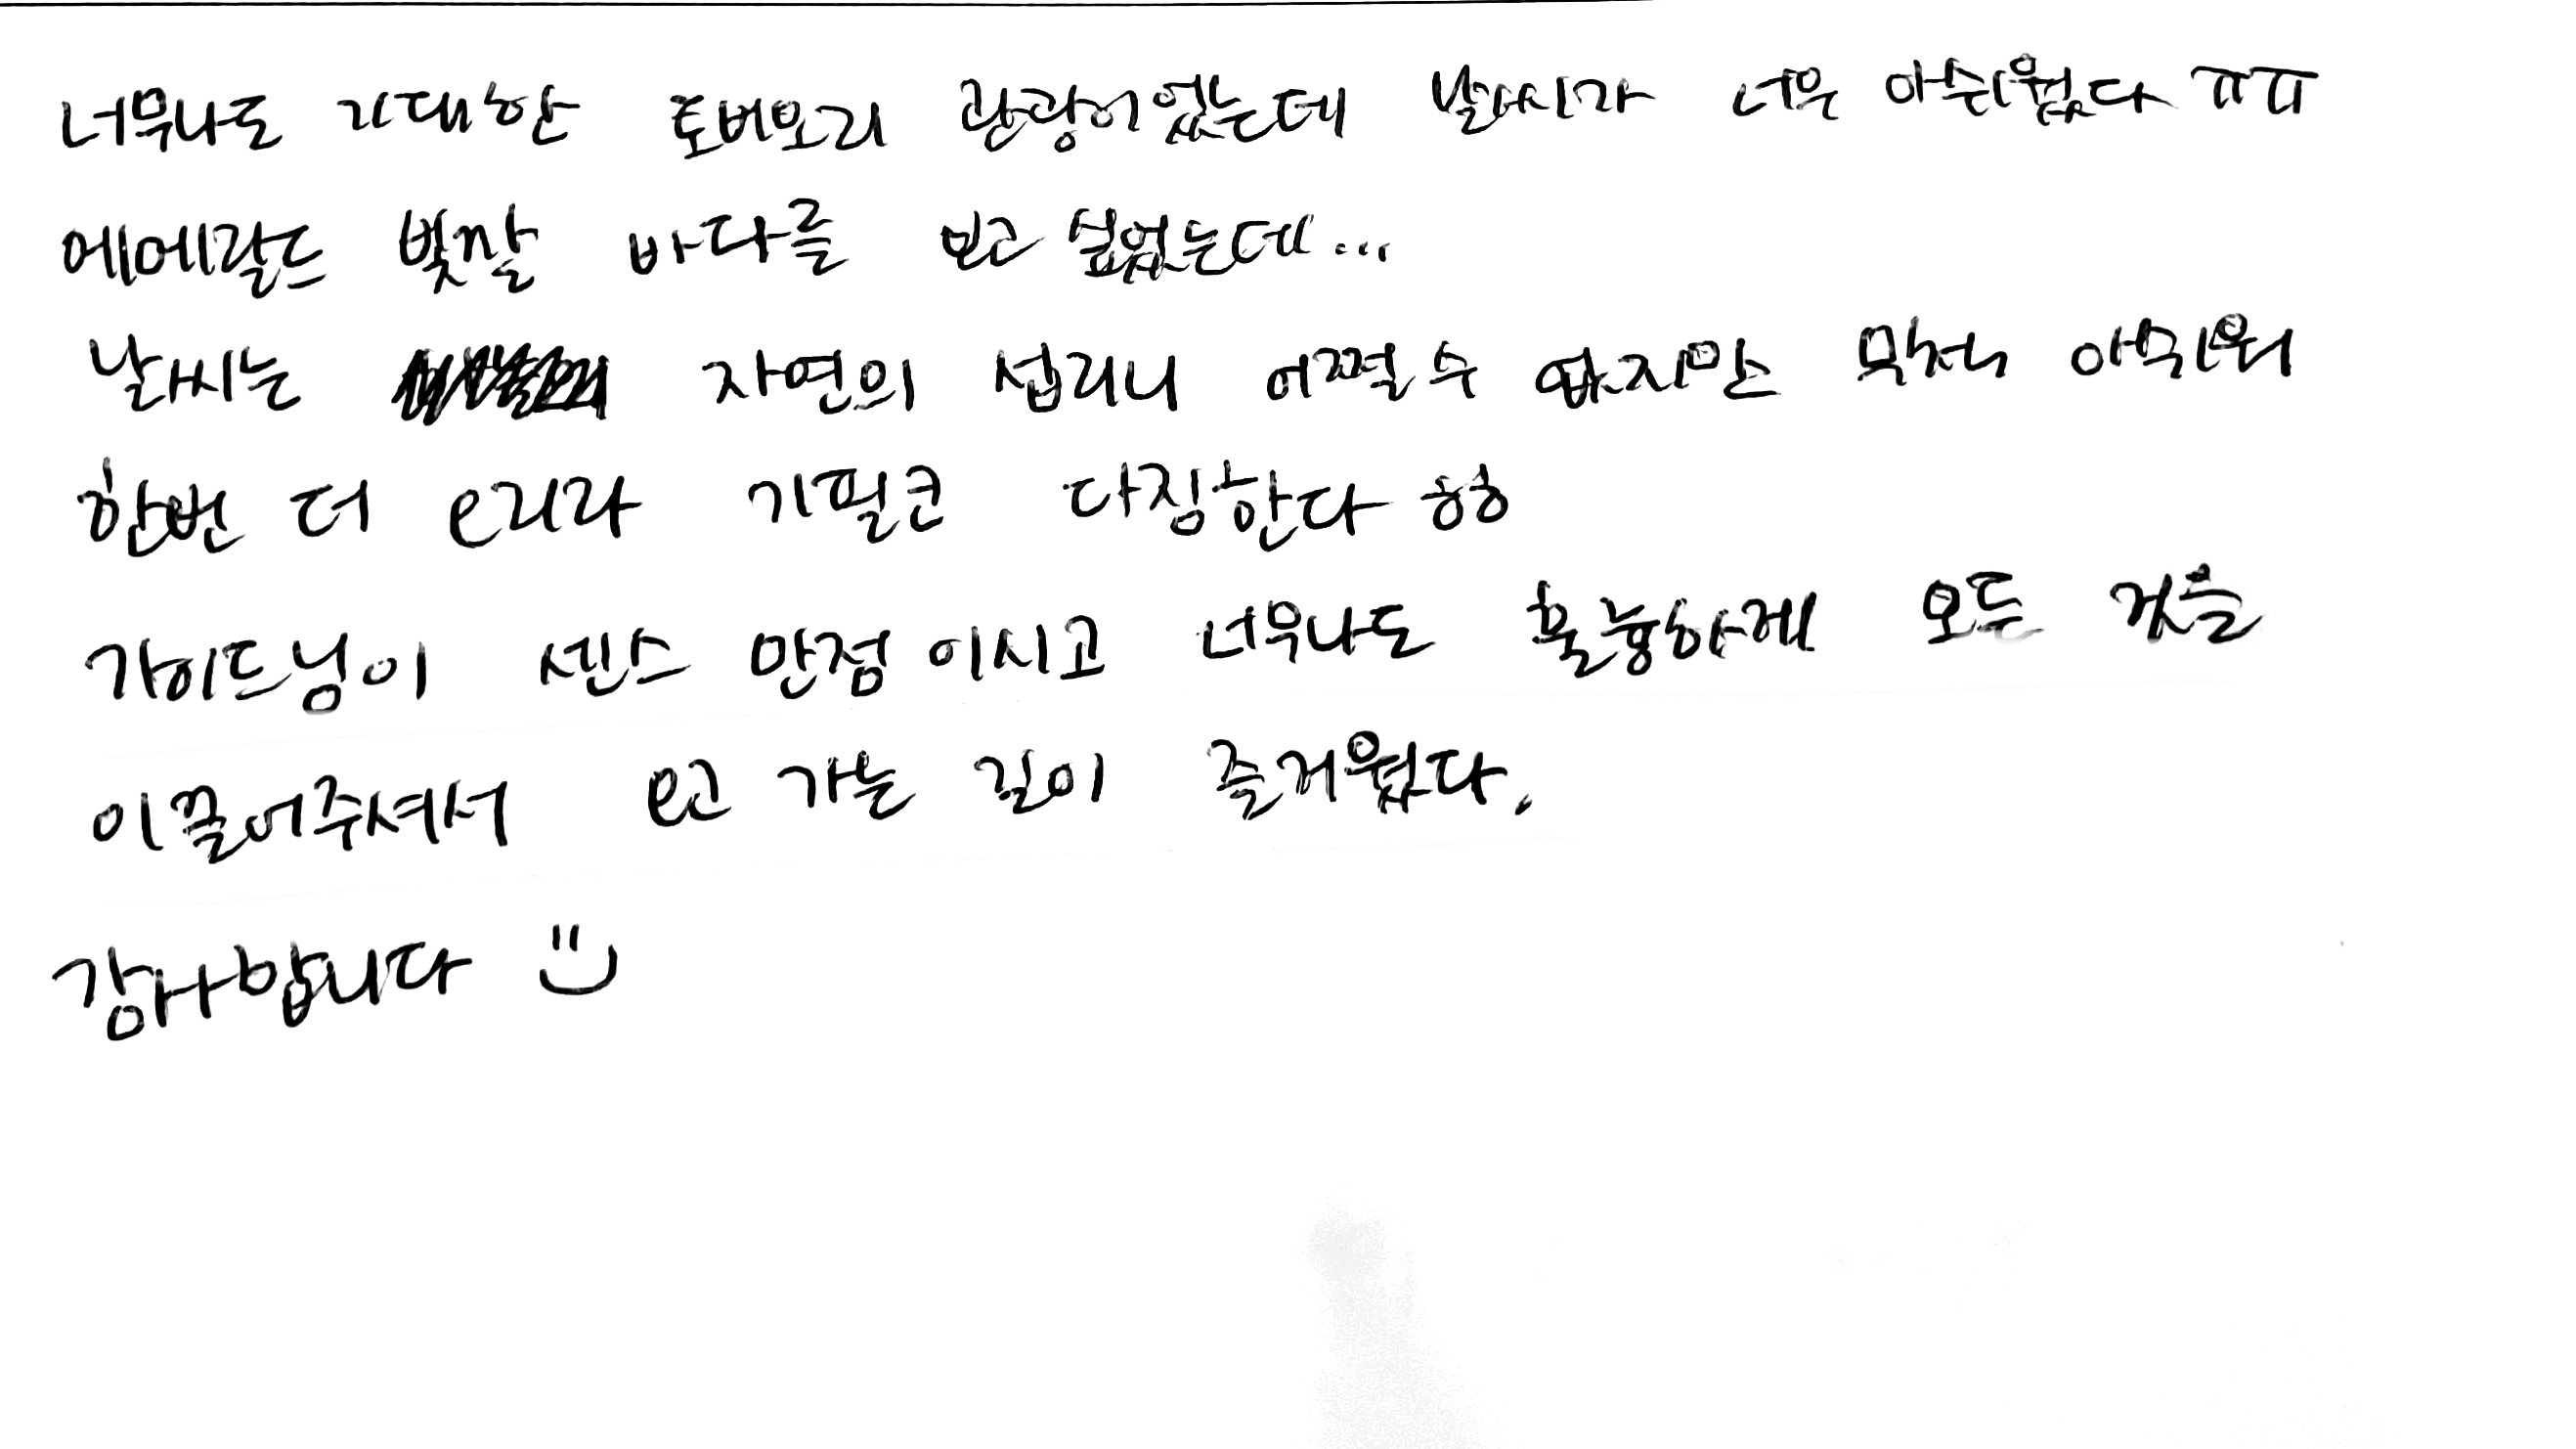 너무나도 기대한 토버모리 관광이었는데 날씨가 너무 아쉬웠다 ㅠㅠ
에메랄드 빛깔 바다를 보고 싶었는데...
날씨는 자연의 섭리니 어쩔 수 없지만 무척 아쉬워
한번 더 오리라 기필코 다짐한다 ㅎㅎ
가이드님이 센스 만점 이시고 너무나도 훌륭하게 모두 것을
이끌어주셔서 오고 가는 길이 즐거웠다.
감사합니다